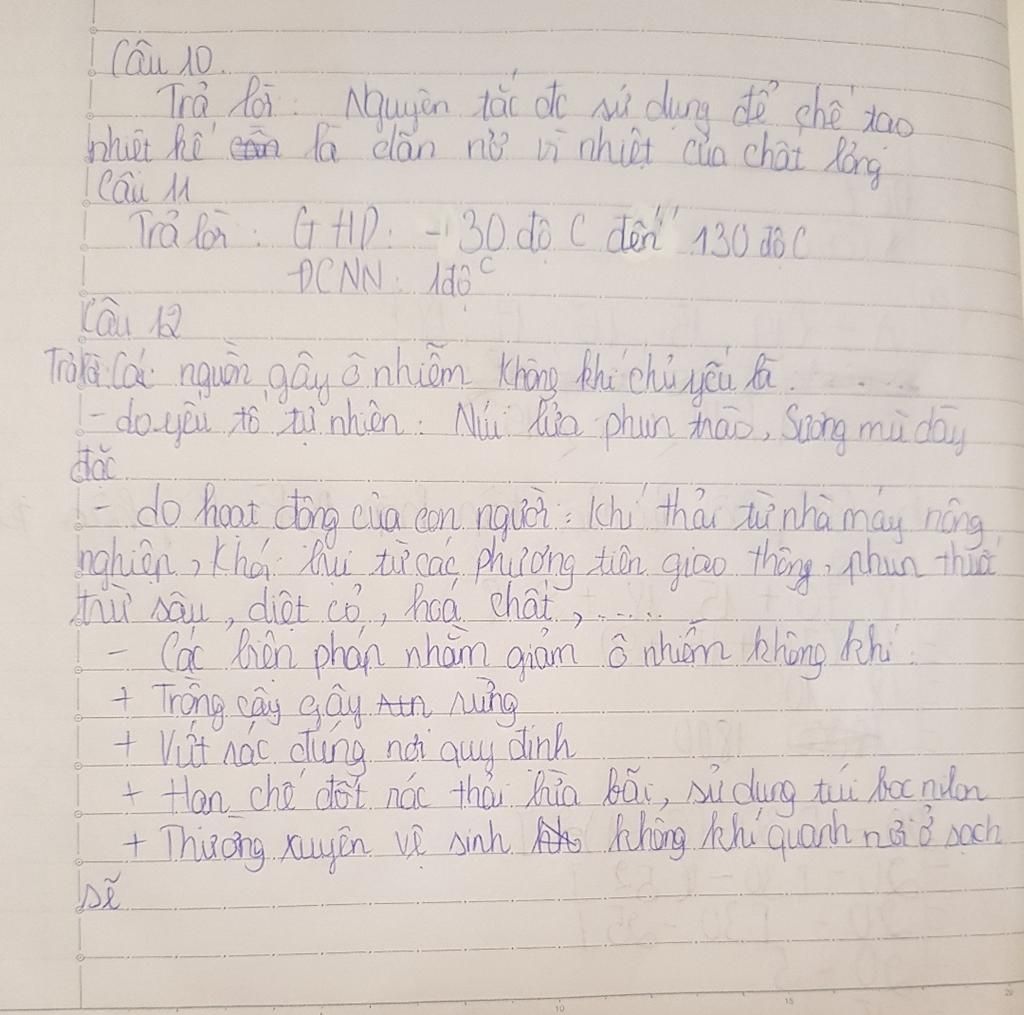 Câu 10.
Trả lời: Nguyên tắc đc sử dụng để chế tạo
nhiệt kế là dãn nở vì nhiệt của chất lỏng
Câu 11
Trả lời: GHD: -30 độ C đến 130 độ C
ĐCNN: 1độ C
Câu 12
Trả lời: Các nguồn gây ô nhiễm không khí chủ yếu là.....
- do yếu tố tự nhiên: Núi lửa phun trào, Sương mù dày
đặc
- do hoạt động của con người: khí thải từ nhà máy nông
nghiệp, khói từ các phương tiện giao thông, phun thuốc
trừ sâu, diệt cỏ, hoá chất, .....
- Các biện pháp nhằm giảm ô nhiễm không khí:
+ Trồng cây gây rừng
+ Vứt rác đúng nơi quy định
+ Hạn chế đốt rác thải bừa bãi, sử dụng túi bọc nilon
+ Thường xuyên vệ sinh không khí quanh nơi ở sạch
sẽ
10
15
20